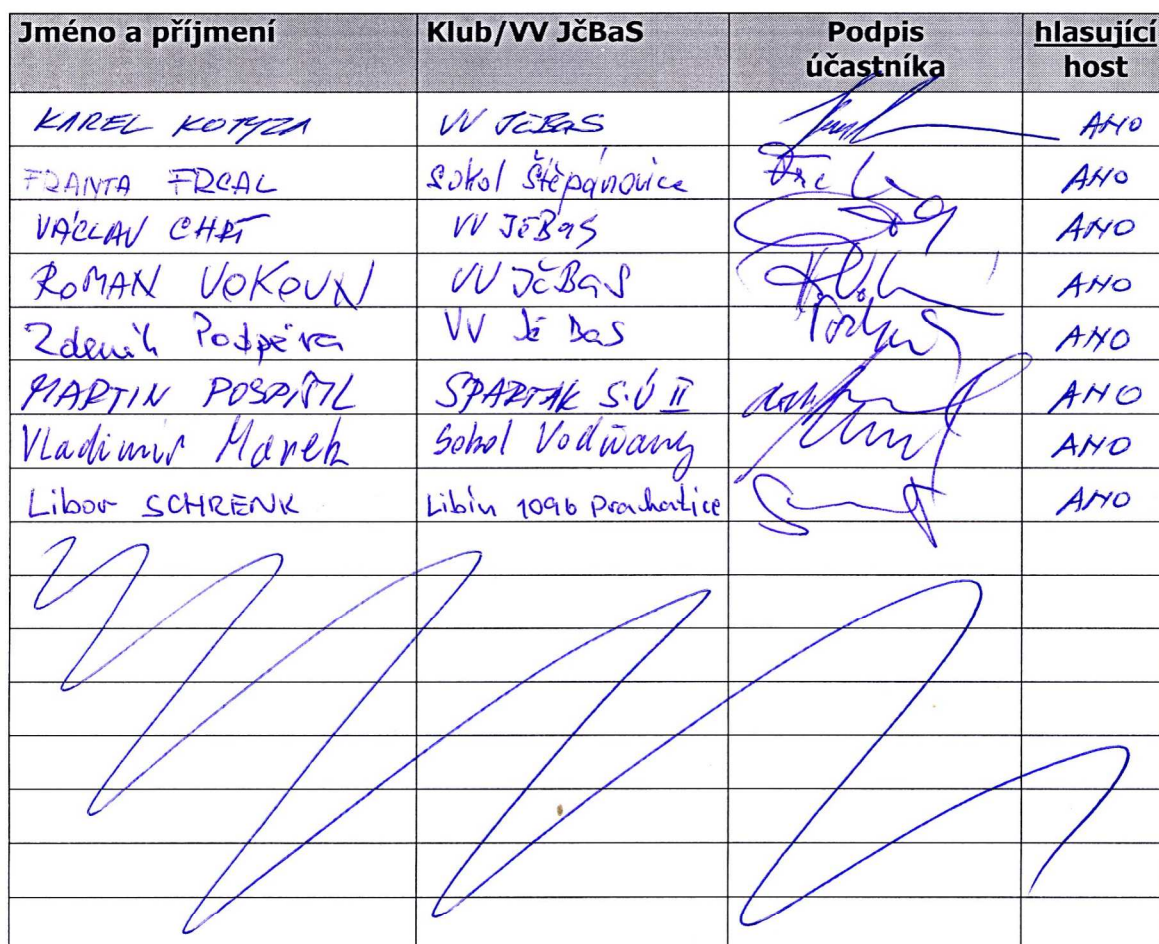 Jméno a příjmení Klub/VV JčBaS Podpis účastníka hlasující host
KAREL KOTYZA VV JčBaS ANO
FRANTA FRCAL Sokol Štěpánovice ANO
VÁCLAV CHRT VV JčBaS ANO
ROMAN VOKOUN VV JčBaS ANO
Zdeněk Podpěra VV Jč BaS ANO
MARTIN POSPÍŠIL SPARTAK S.Ú II ANO
Vladimír Marek Sokol Vodňany ANO
Libor SCHRENK Libín 1096 Prachatice ANO